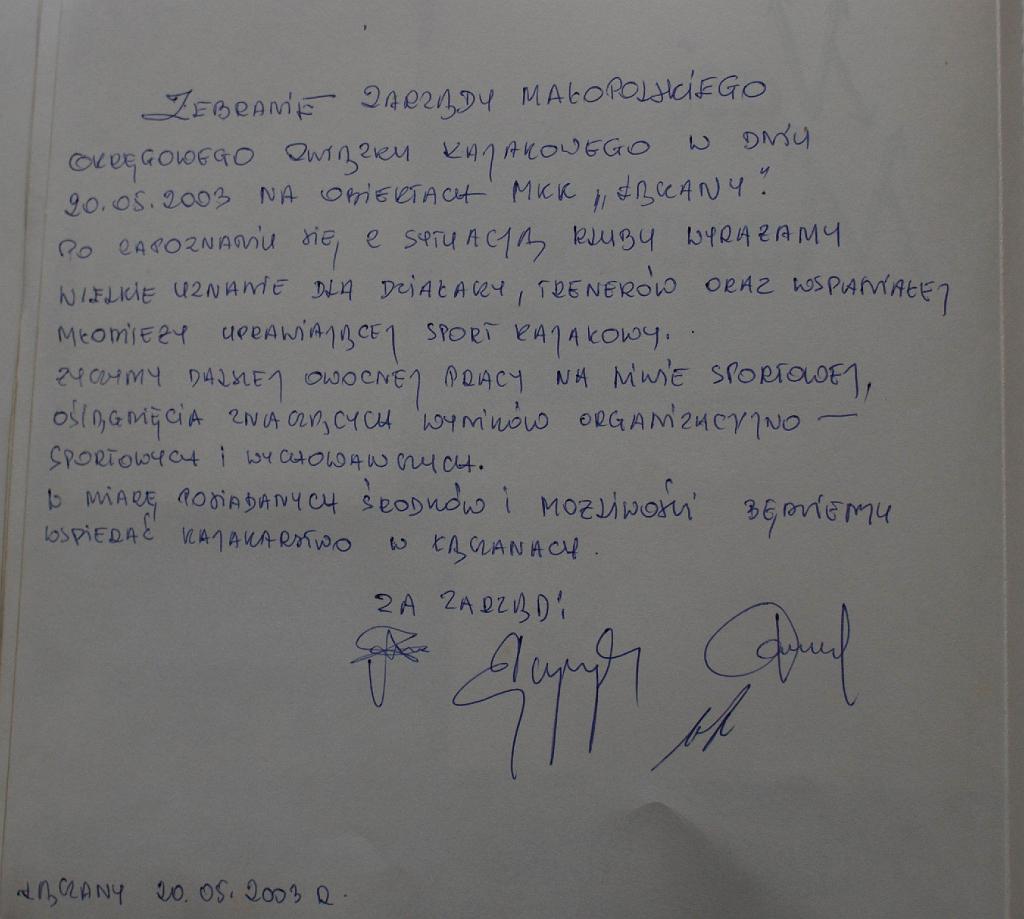 ZEBRANIE ZARZĄDU MAŁOPOLSKIEGO
OKRĘGOWEGO ZWIĄZKU KAJAKOWEGO W DNIU
20.05.2003 NA OBIEKTACH MKK „ŁĄCZANY".
PO ZAPOZNANIU SIĘ, Z SYTUACJĄ KLUBU WYRAŻAMY
WIELKIE UZNANIE DLA DZIAŁACZY, TRENERÓW ORAZ WSPANIAŁEJ
MŁODZIEŻY UPRAWIAJĄCEJ SPORT KAJAKOWY.
ŻYCZYMY DALSZEJ OWOCNEJ PRACY NA NIWIE SPORTOWEJ,
OSIĄGNIĘCIA ZNACZĄCYCH WYNIKÓW ORGANIZACYJNO —
SPORTOWYCH I WYCHOWAWCZYCH.
W MIARĘ POSIADANYCH ŚRODKÓW I MOŻLIWOŚCI BĘDZIEMY
WSPIERAĆ KAJAKARSTWO W ŁĄCZANACH.
ZA ZARZĄD:
ŁĄCZANY 20.05.2003 R.